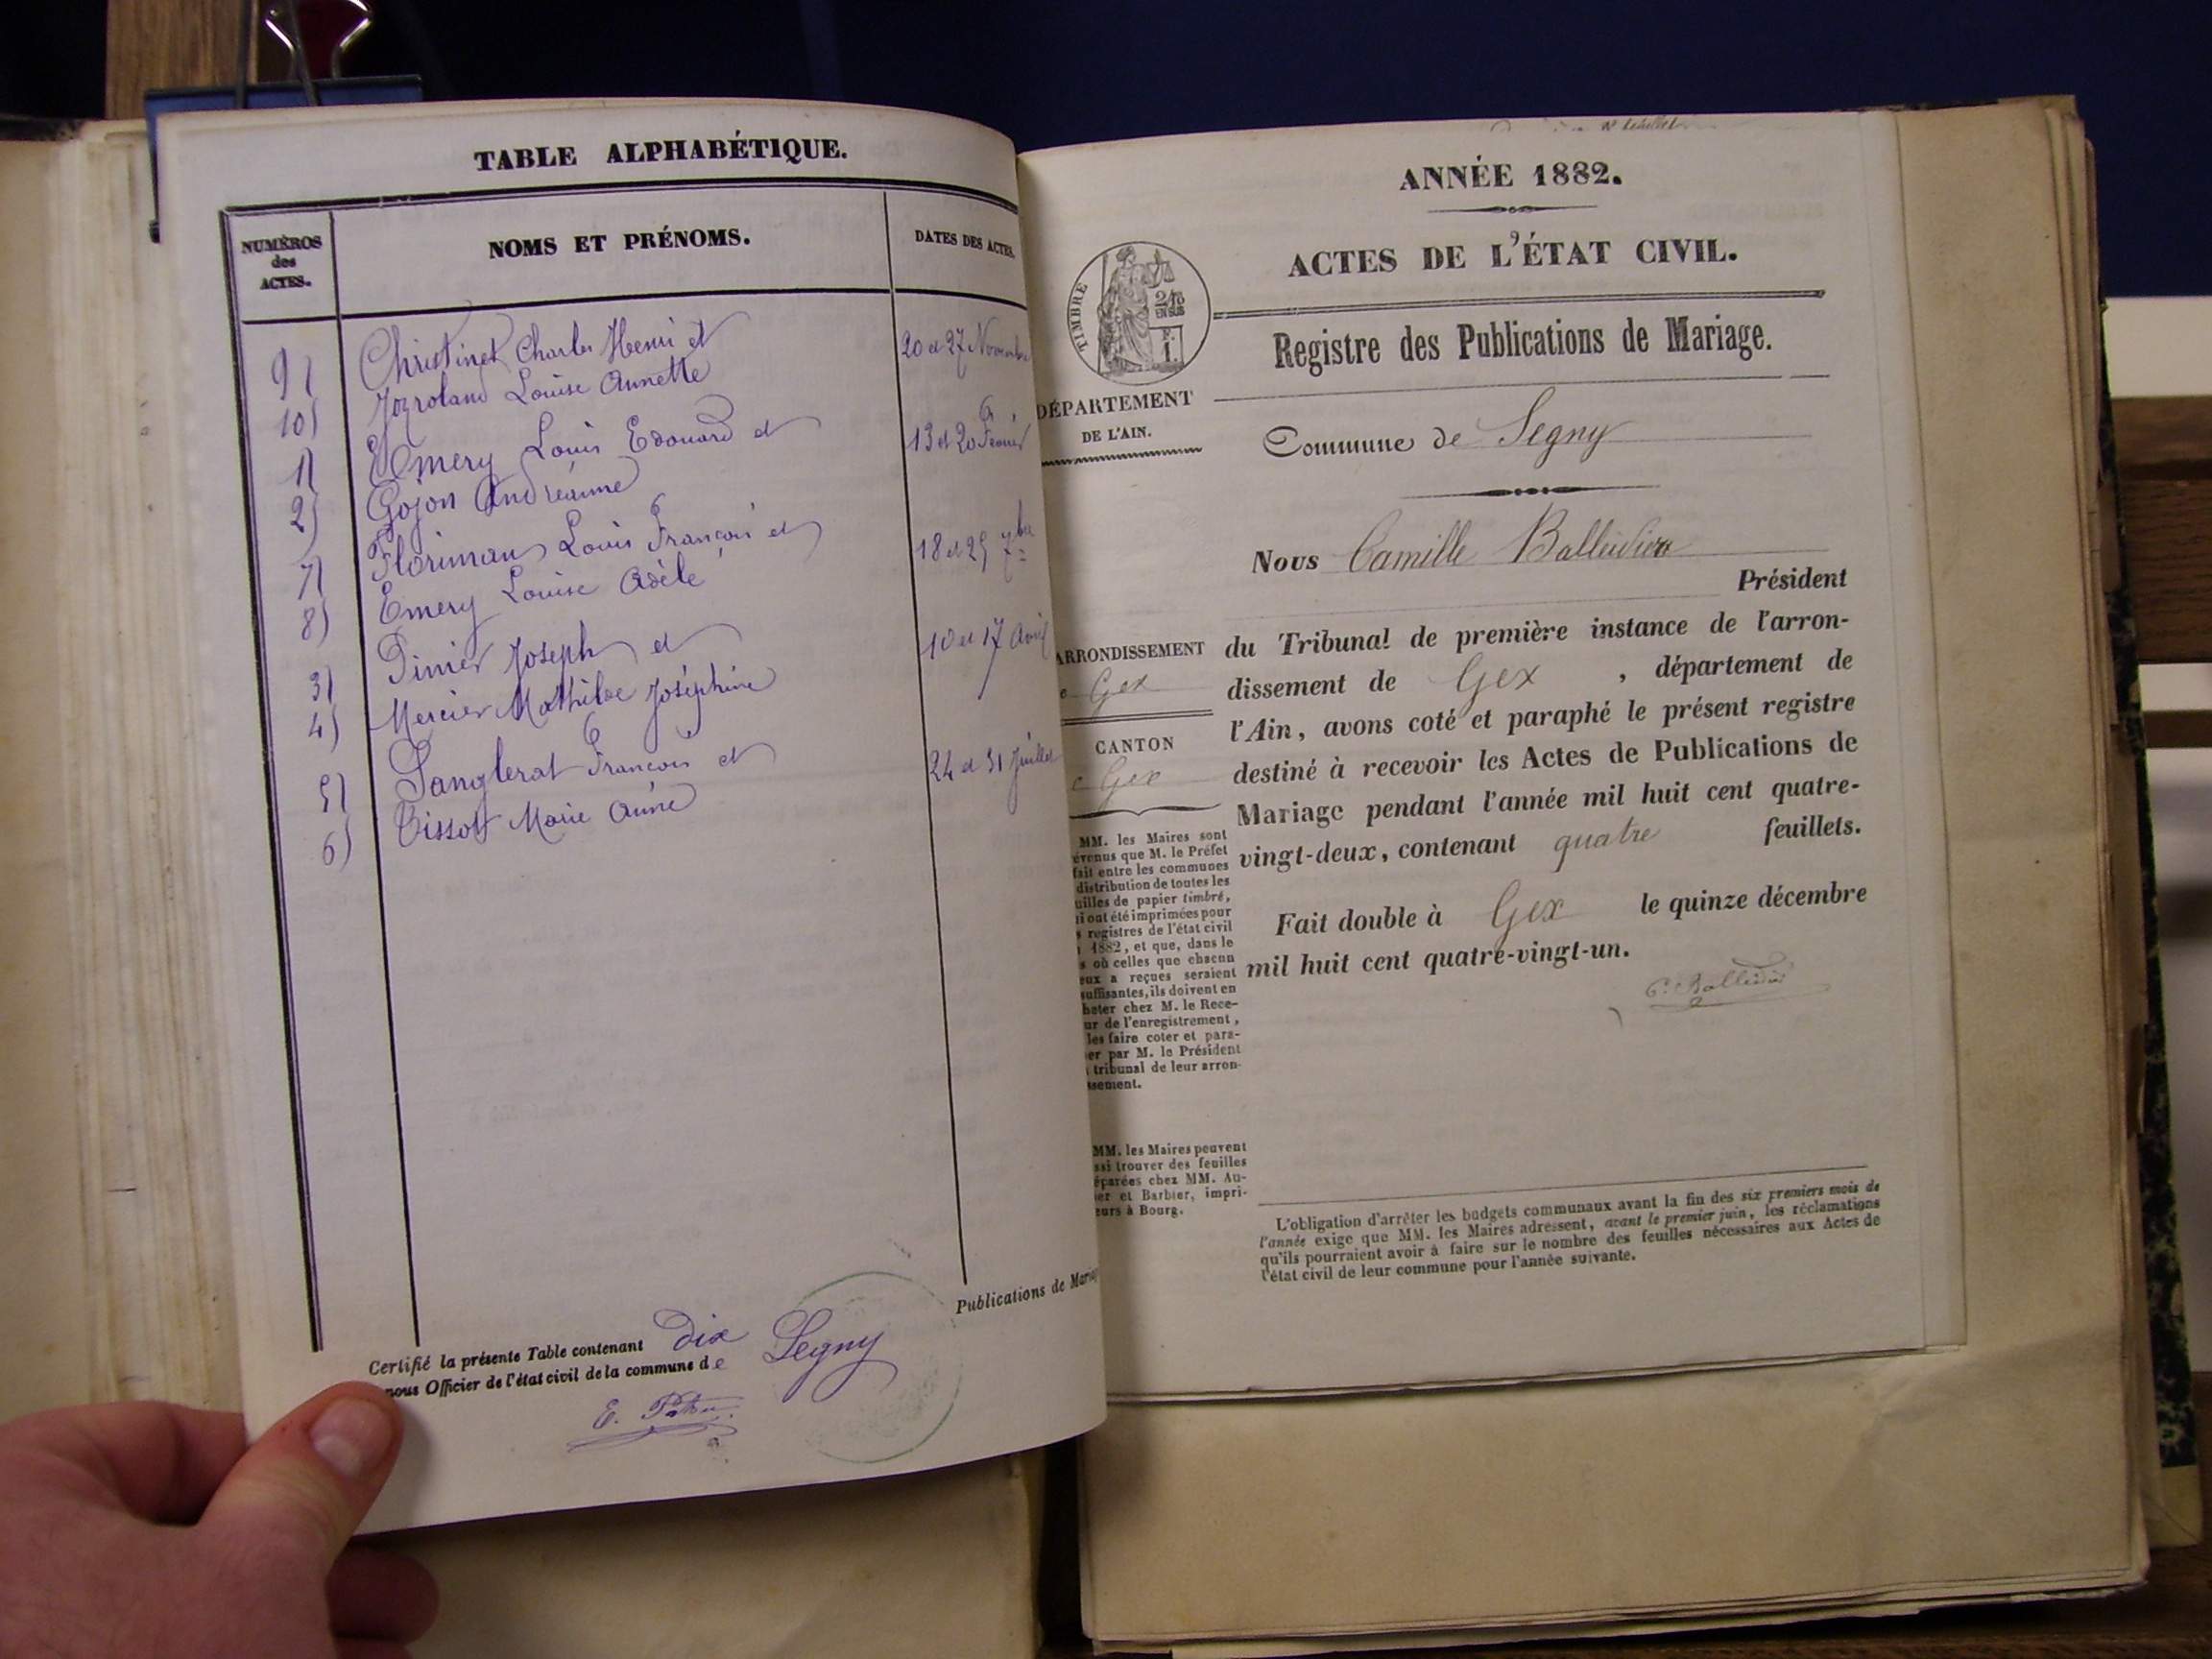 TABLE ALPHABÉTIQUE.
NUMÉROS
des
ACTES.
NOMS ET PRÉNOMS.
DATES DES ACTES.
9) Christinet Charles Henri et 20 et 27 Novembre
10) Louise Annette
1) Emery Louis Edouard et 13 et 20 Février
2) Gojon Andréanne
7) Florimans Louis François et 18 et 25 7bre
8) Emery Louise Adèle
3) Joseph et 10 et 17 Avril
4) Mercier Mathilde Joséphine
5) Sanglerat François et 24 et 31 Juillet
6) Tissot Marie Anne
Certifié la présente Table contenant dix
nous Officier de l'état civil de la commune de Segny
E.
Publications de Mariag
ANNÉE 1882.
ACTES DE L'ÉTAT CIVIL.
TIMBRE
2/10
EN SUS
F.
1.
Registre des Publications de Mariage.
DÉPARTEMENT
DE L'AIN.
Commune de Segny
Nous Camille Balleidier
Président
ARRONDISSEMENT
e Gex
CANTON
e Gex
du Tribunal de première instance de l'arron-
dissement de Gex, département de
l'Ain, avons coté et paraphé le présent registre
destiné à recevoir les Actes de Publications de
Mariage pendant l'année mil huit cent quatre-
vingt-deux, contenant quatre feuillets.
Fait double à Gex le quinze décembre
mil huit cent quatre-vingt-un.
C. Balleidier
MM. les Maires sont
évenus que M. le Préfet
fait entre les communes
distribution de toutes les
uilles de papier timbré,
i ont été imprimées pour
s registres de l'état civil
1882, et que, dans le
s où celles que chacun
eux a reçues seraient
suffisantes, ils doivent en
heter chez M. le Rece-
ur de l'enregistrement,
les faire coter et para-
er par M. le Président
tribunal de leur arron-
ssement.
MM. les Maires peuvent
ssi trouver des feuilles
éparées chez MM. Au-
er et Barbier, impri-
eurs à Bourg.
L'obligation d'arrêter les budgets communaux avant la fin des six premiers mois de
l'année exige que MM. les Maires adressent, avant le premier juin, les réclamations
qu'ils pourraient avoir à faire sur le nombre des feuilles nécessaires aux Actes de
l'état civil de leur commune pour l'année suivante.